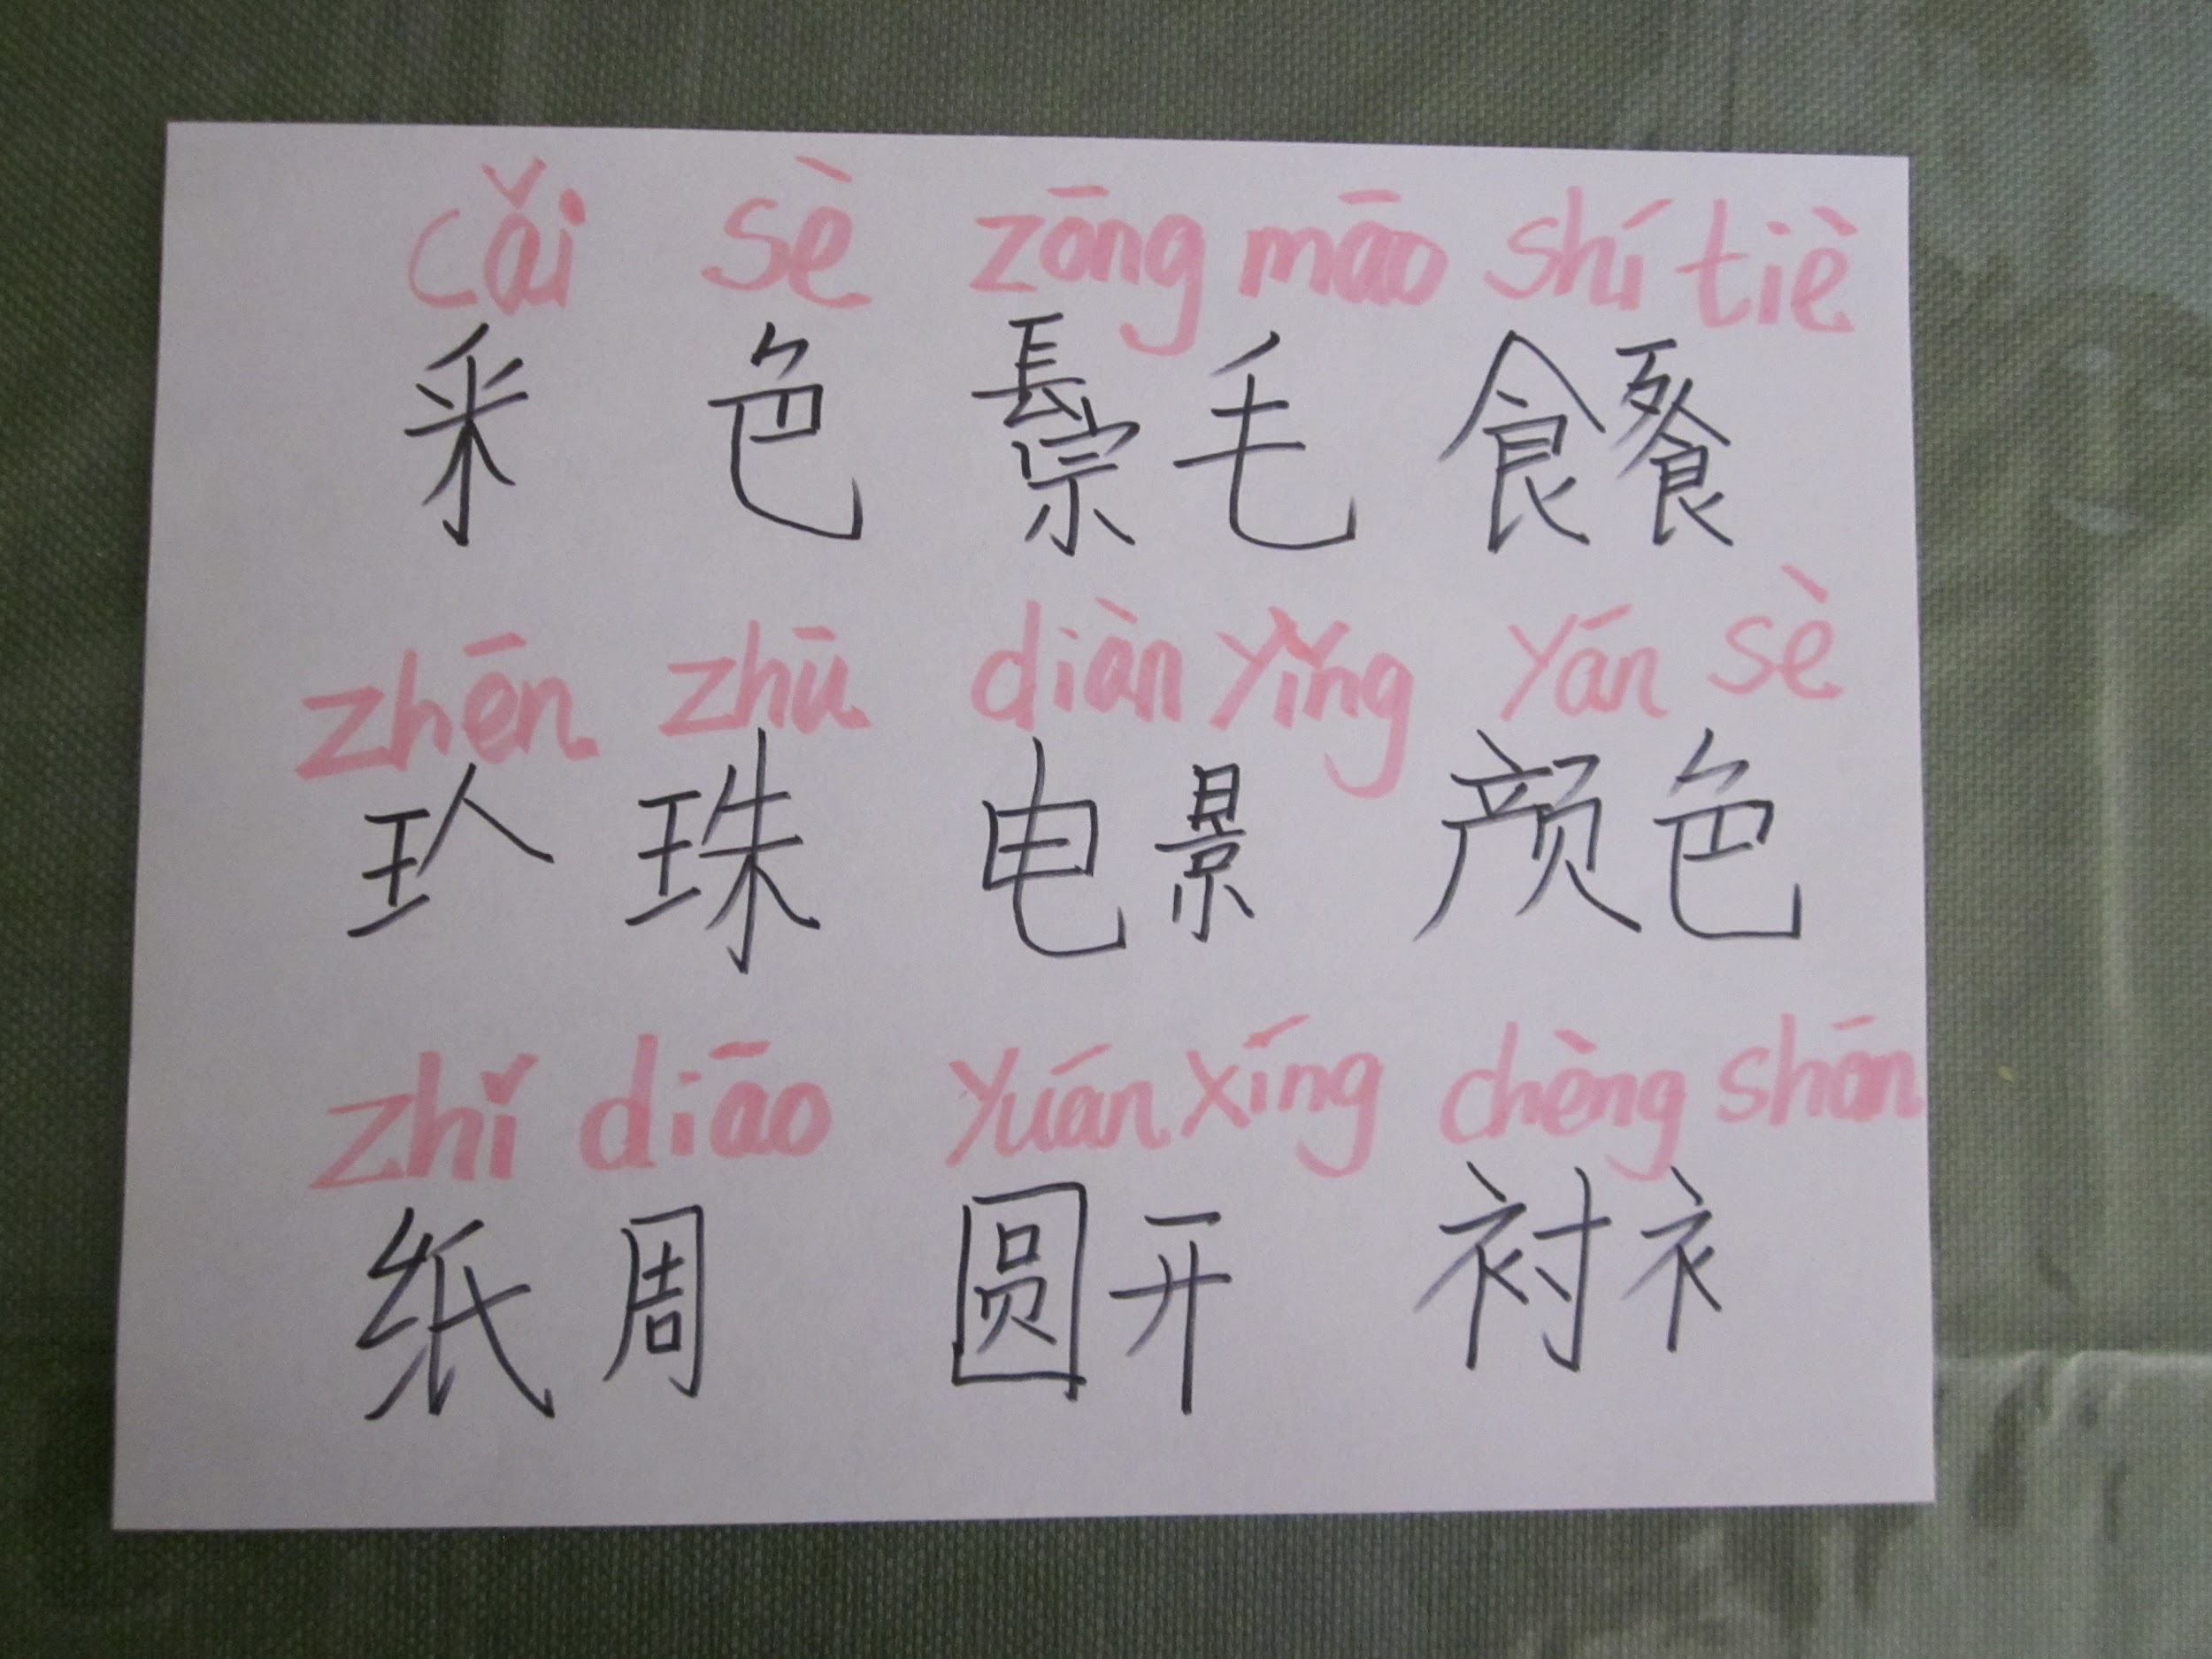 cǎi sè zōng māo shí tiè
采 色 毛 食
zhēn zhū diàn yǐng yán sè
珠 电 景 颜 色
zhǐ diāo yuán xíng chèng shān
纸 周 圆 开 衬